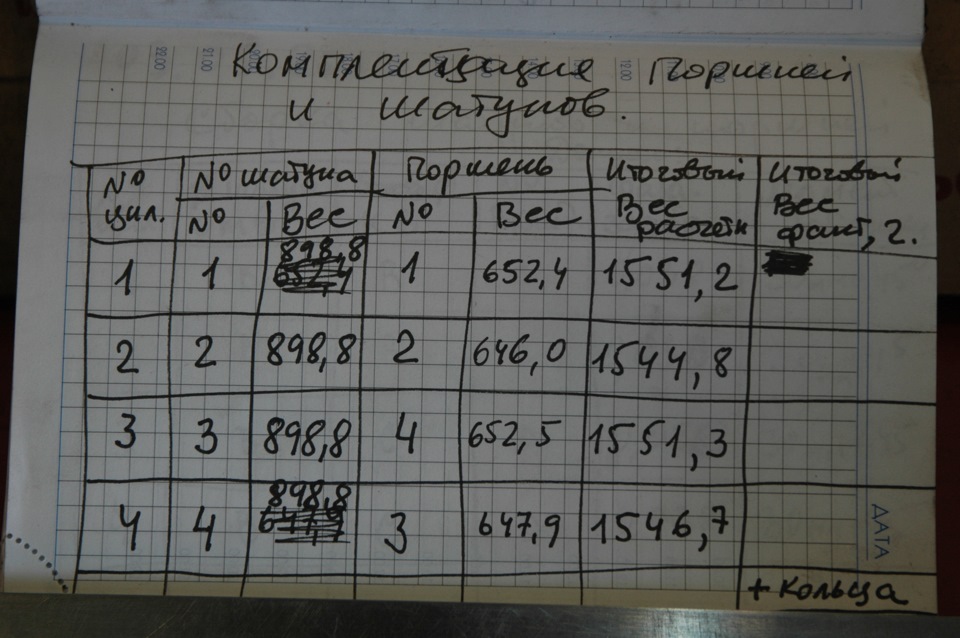 Комплектация Поршней
и шатунов.
№ цил. № шатуна Поршень Итоговый Вес расчетн Итоговый Вес факт, г.
№ Вес № Вес
1 1 898,8 1 652,4 1551,2
2 2 898,8 2 646,0 1544,8
3 3 898,8 4 652,5 1551,3
4 4 898,8 3 647,9 1546,7
+ Кольца
ДАТА